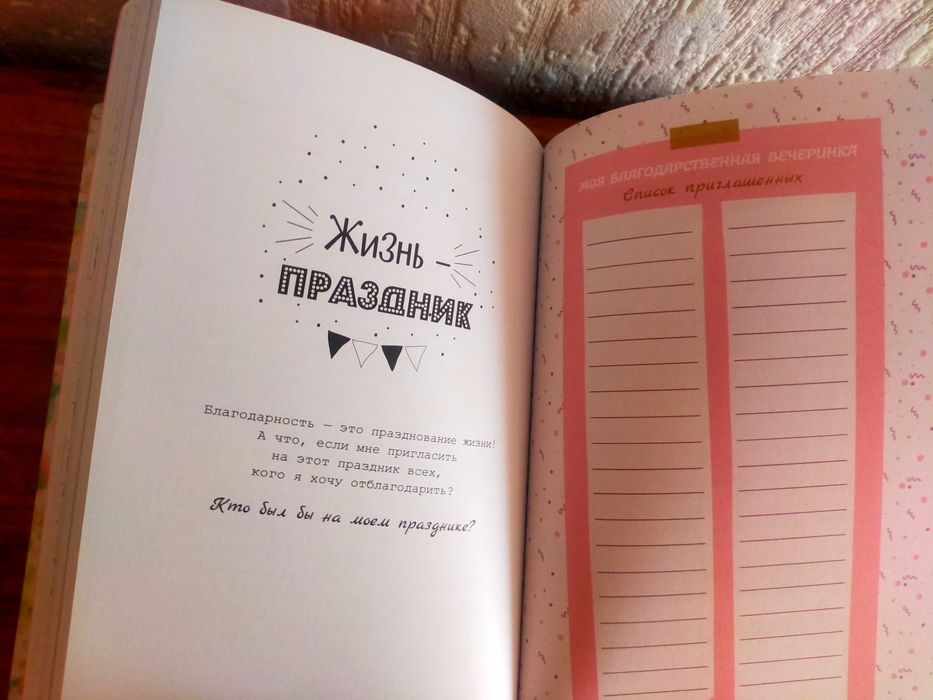 Жизнь –
ПРАЗДНИК
Благодарность — это празднование жизни!
А что, если мне пригласить
на этот праздник всех,
кого я хочу отблагодарить?
Кто был бы на моем празднике?
МОЯ БЛАГОДАРСТВЕННАЯ ВЕЧЕРИНКА
Список приглашенных